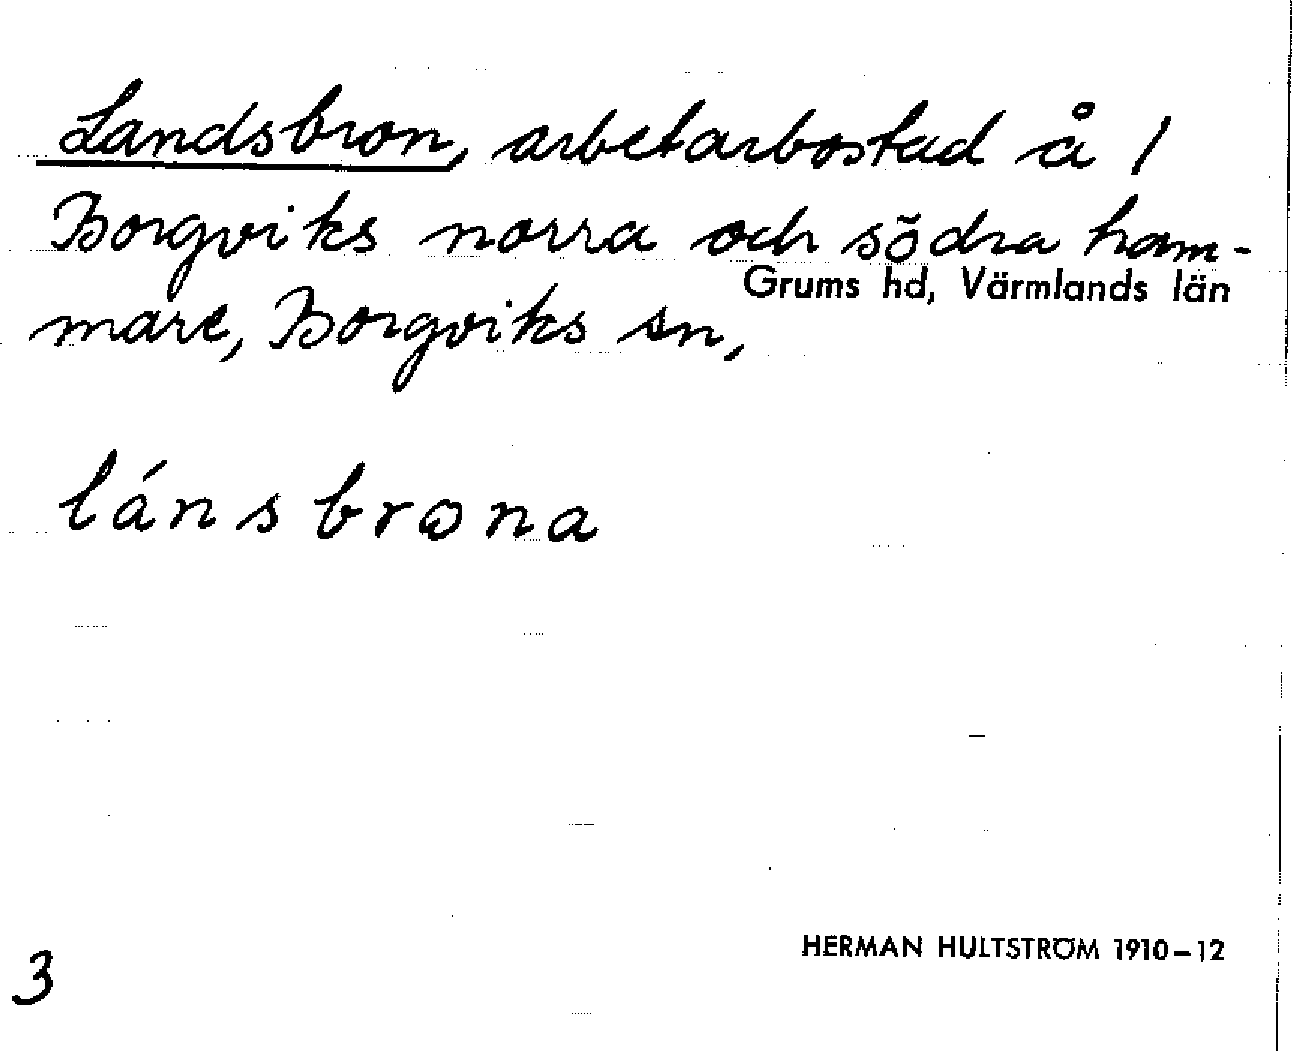 Landsbron, arbetarbostad å 1
Borgviks norra och södra ham-
Grums hd, Värmlands län
mare, Borgviks sn,
lánsbrona
3
HERMAN HULTSTRÖM 1910-12